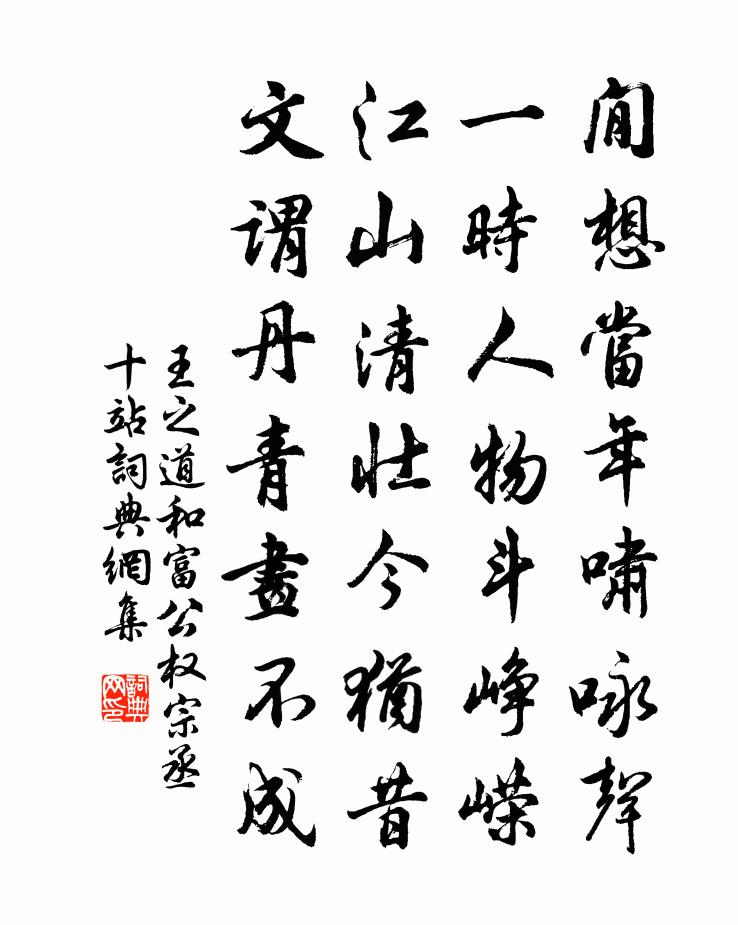 閒想當年嘯咏聲
一時人物斗峥嵘
江山清壯今猶昔
文謂丹青畫不成
王之道和富公权宗丞
十站詞典網集
詞典网印